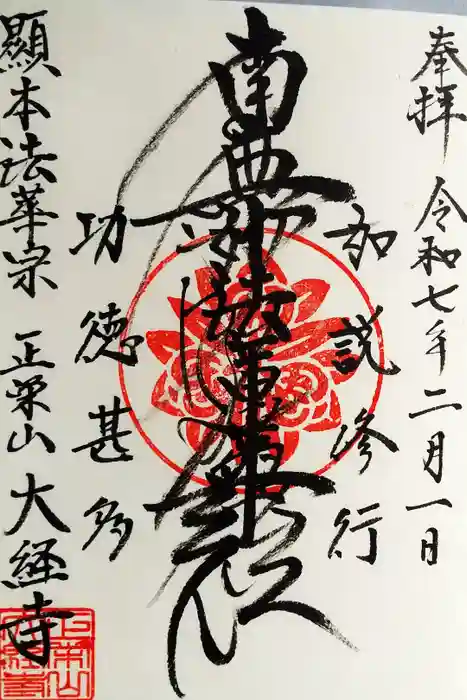 奉拝 令和七年二月一日
如説修行
南無妙法蓮華経
功徳甚多
顯本法華宗 正栄山 大経寺